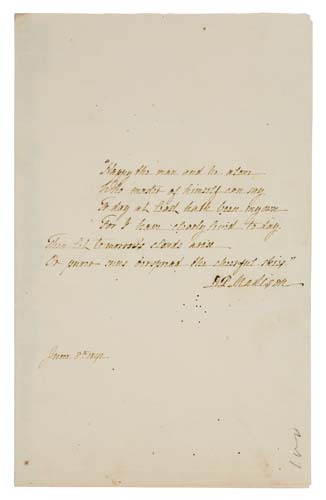 "Happy the man and he alone,
Who master of himself can say
To day at least hath been my own
For I have clearly liv'd to day.
Then let tomorrow's clouds arise
Or purer suns overspread the cheerful skies."
D.P. Madison
June 8th